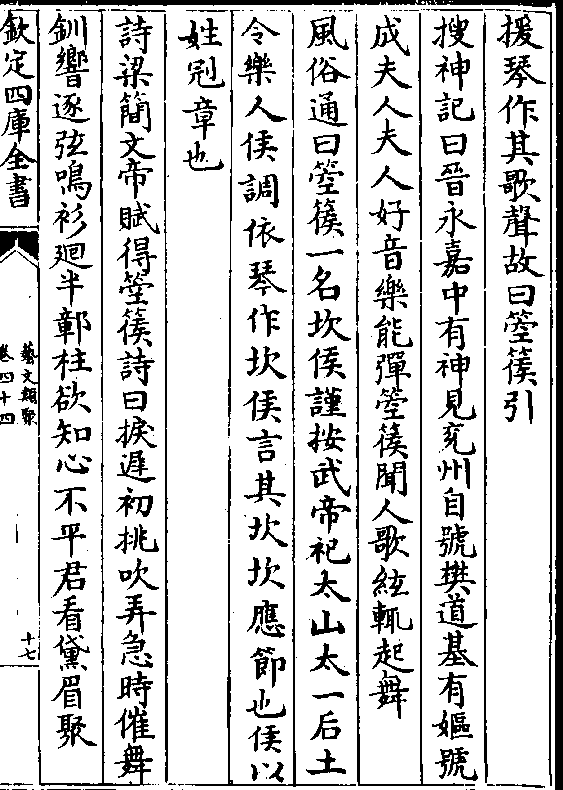 援琴作其歌聲故曰箜篌引
搜神記曰晉永嘉中有神見兖州自號樊道基有嫗號
成夫人夫人好音樂能彈箜篌聞人歌絃輒起舞
風俗通曰箜篌一名坎侯謹按武帝祀太山太一后土
令樂人侯調依琴作坎侯言其坎坎應節也侯以
姓冠章也
詩梁簡文帝賦得箜篌詩曰捩遲初挑吹弄急時催舞
釧響逐弦鳴衫廻半鄣柱欲知心不平君看黛眉聚
欽定四庫全書
藝文類聚
卷四十四
十七